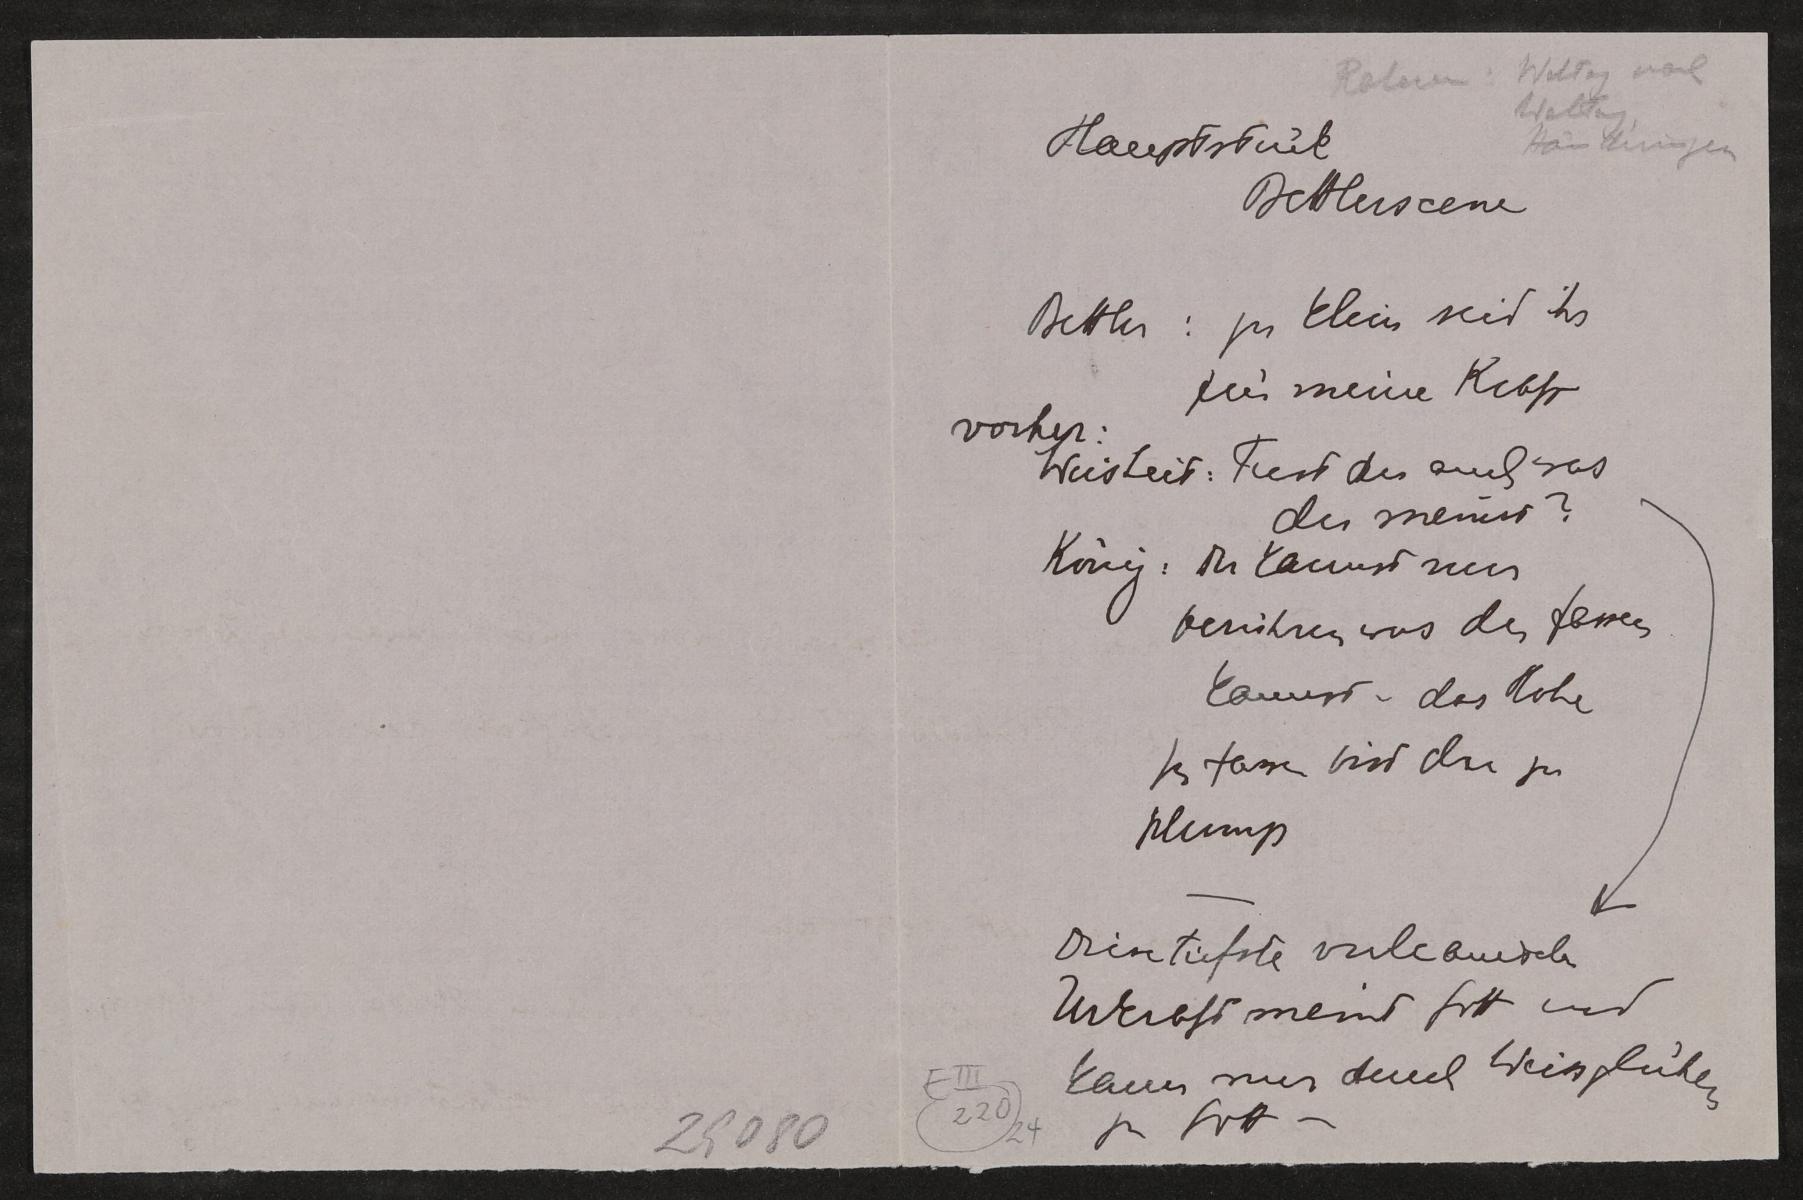 Rahmen: Welttag und
Welttag
Hauptstück
Bettlerscene
Bettler: zu klein seid ihr
für meine Kraft
vorher:
Weisheit: Tust du auch was
du meinst?
König: Du kannst nur
berühren was du fassen
kannst - das Hohe
zu fassen bist du zu
plump
—
Deine tiefste vulcanische
Urkraft meint Gott und
kann nur durch Weissglühen
zu Gott -
E III
220
24
29080